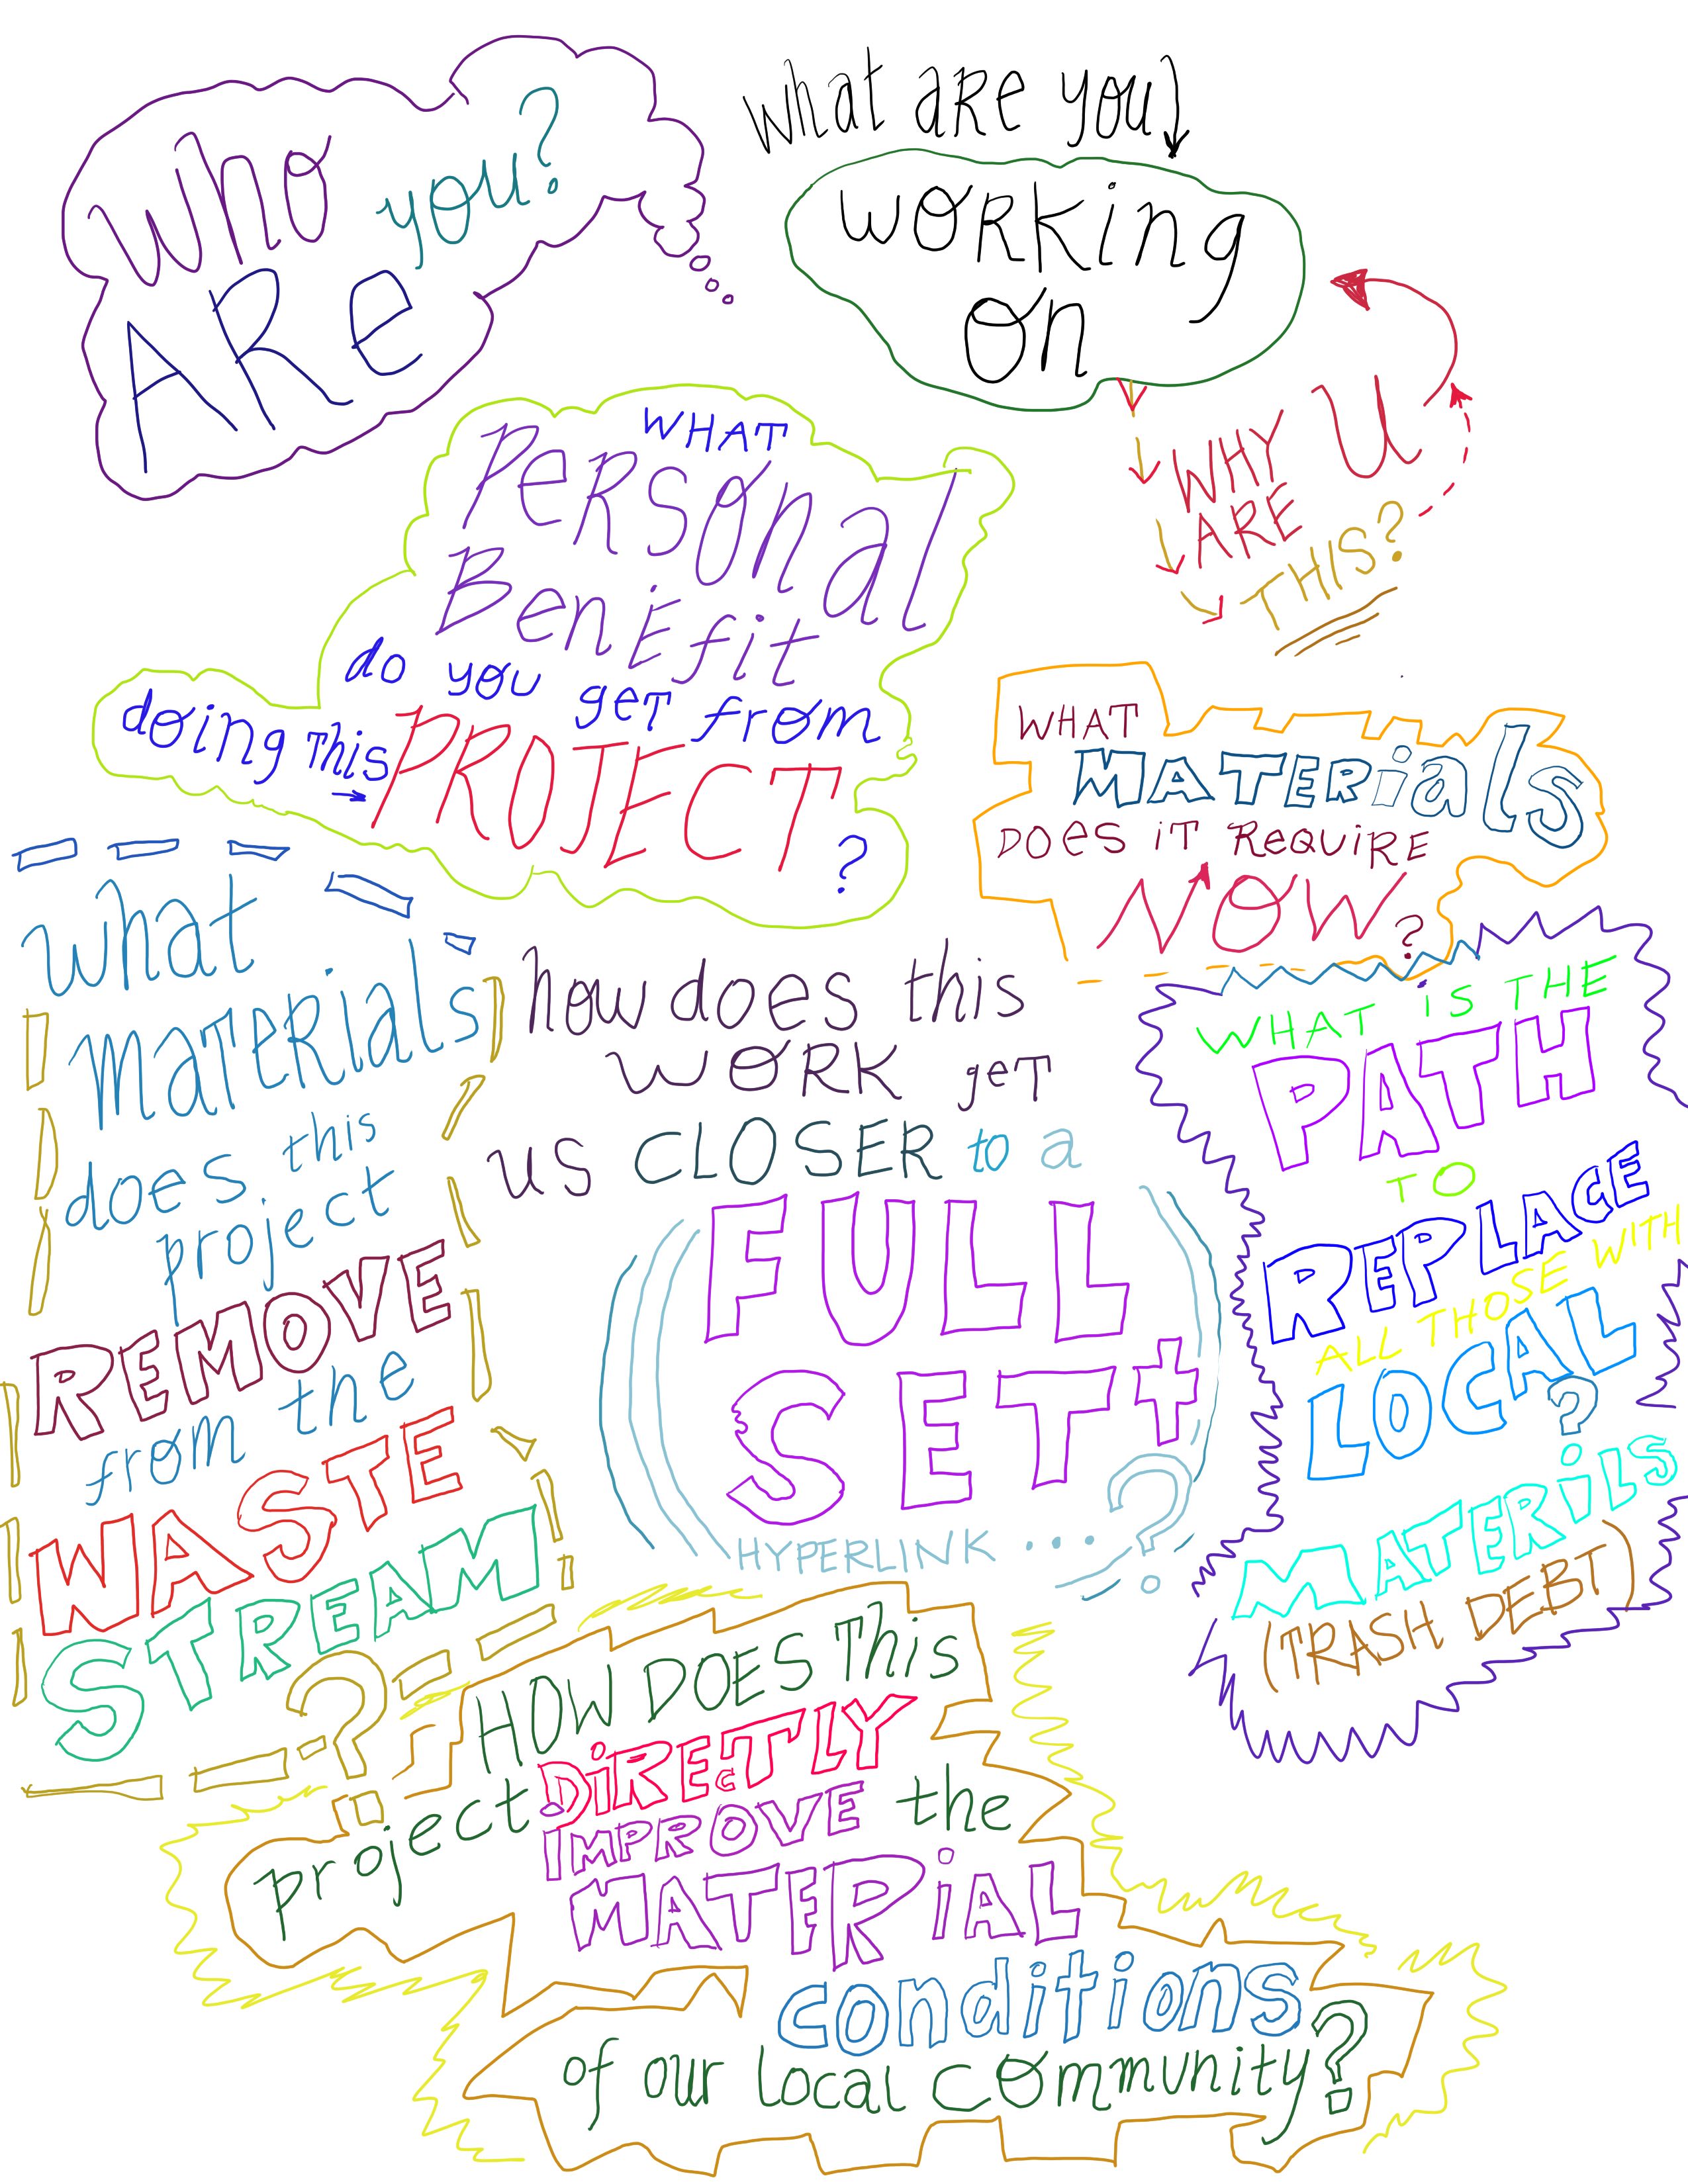 Who
ARe you?
What are you
working
on
WHY
ARE U
THIS?
WHAT
PERSonal
BenEfit
do you get from
doing This PROJECT
?
WHAT
MATERials
DOES iT ReQuiRE
NOW?
what
mateRials
does this
project
REMOVE
from the
WASTE
STREAM
?
how does this
WORK geT
us CLOSER to a
FULL
SET+
HYPERLINK ...?
WHAT IS THE
PATH
TO
REPLACE
ALL THOSE WITH
LOCAL
?
MATERiLS
(TRASH DEBT)
HOW DOES This
project DiRECTLY
IMPROVE the
MATERiAL
conditions
of our local community?